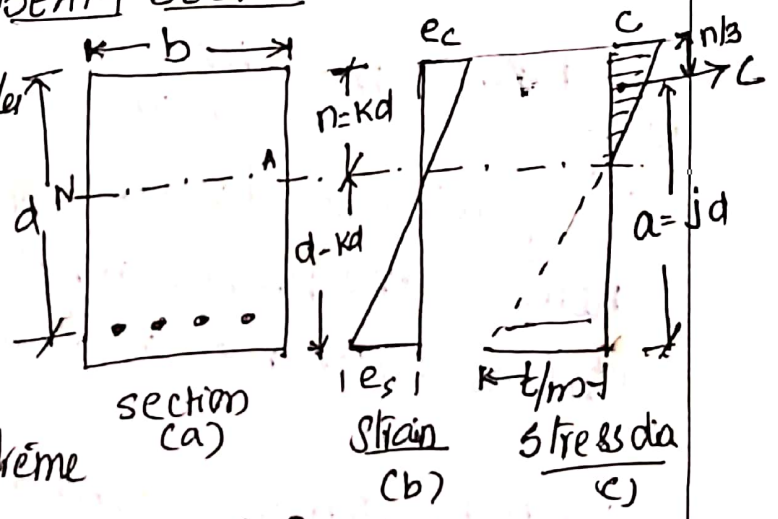 b
ec
c
n/3
n=kd
C
A
N
d
d-kd
a= jd
es
t/m
section
(a)
Strain
(b)
Stress dia
c)